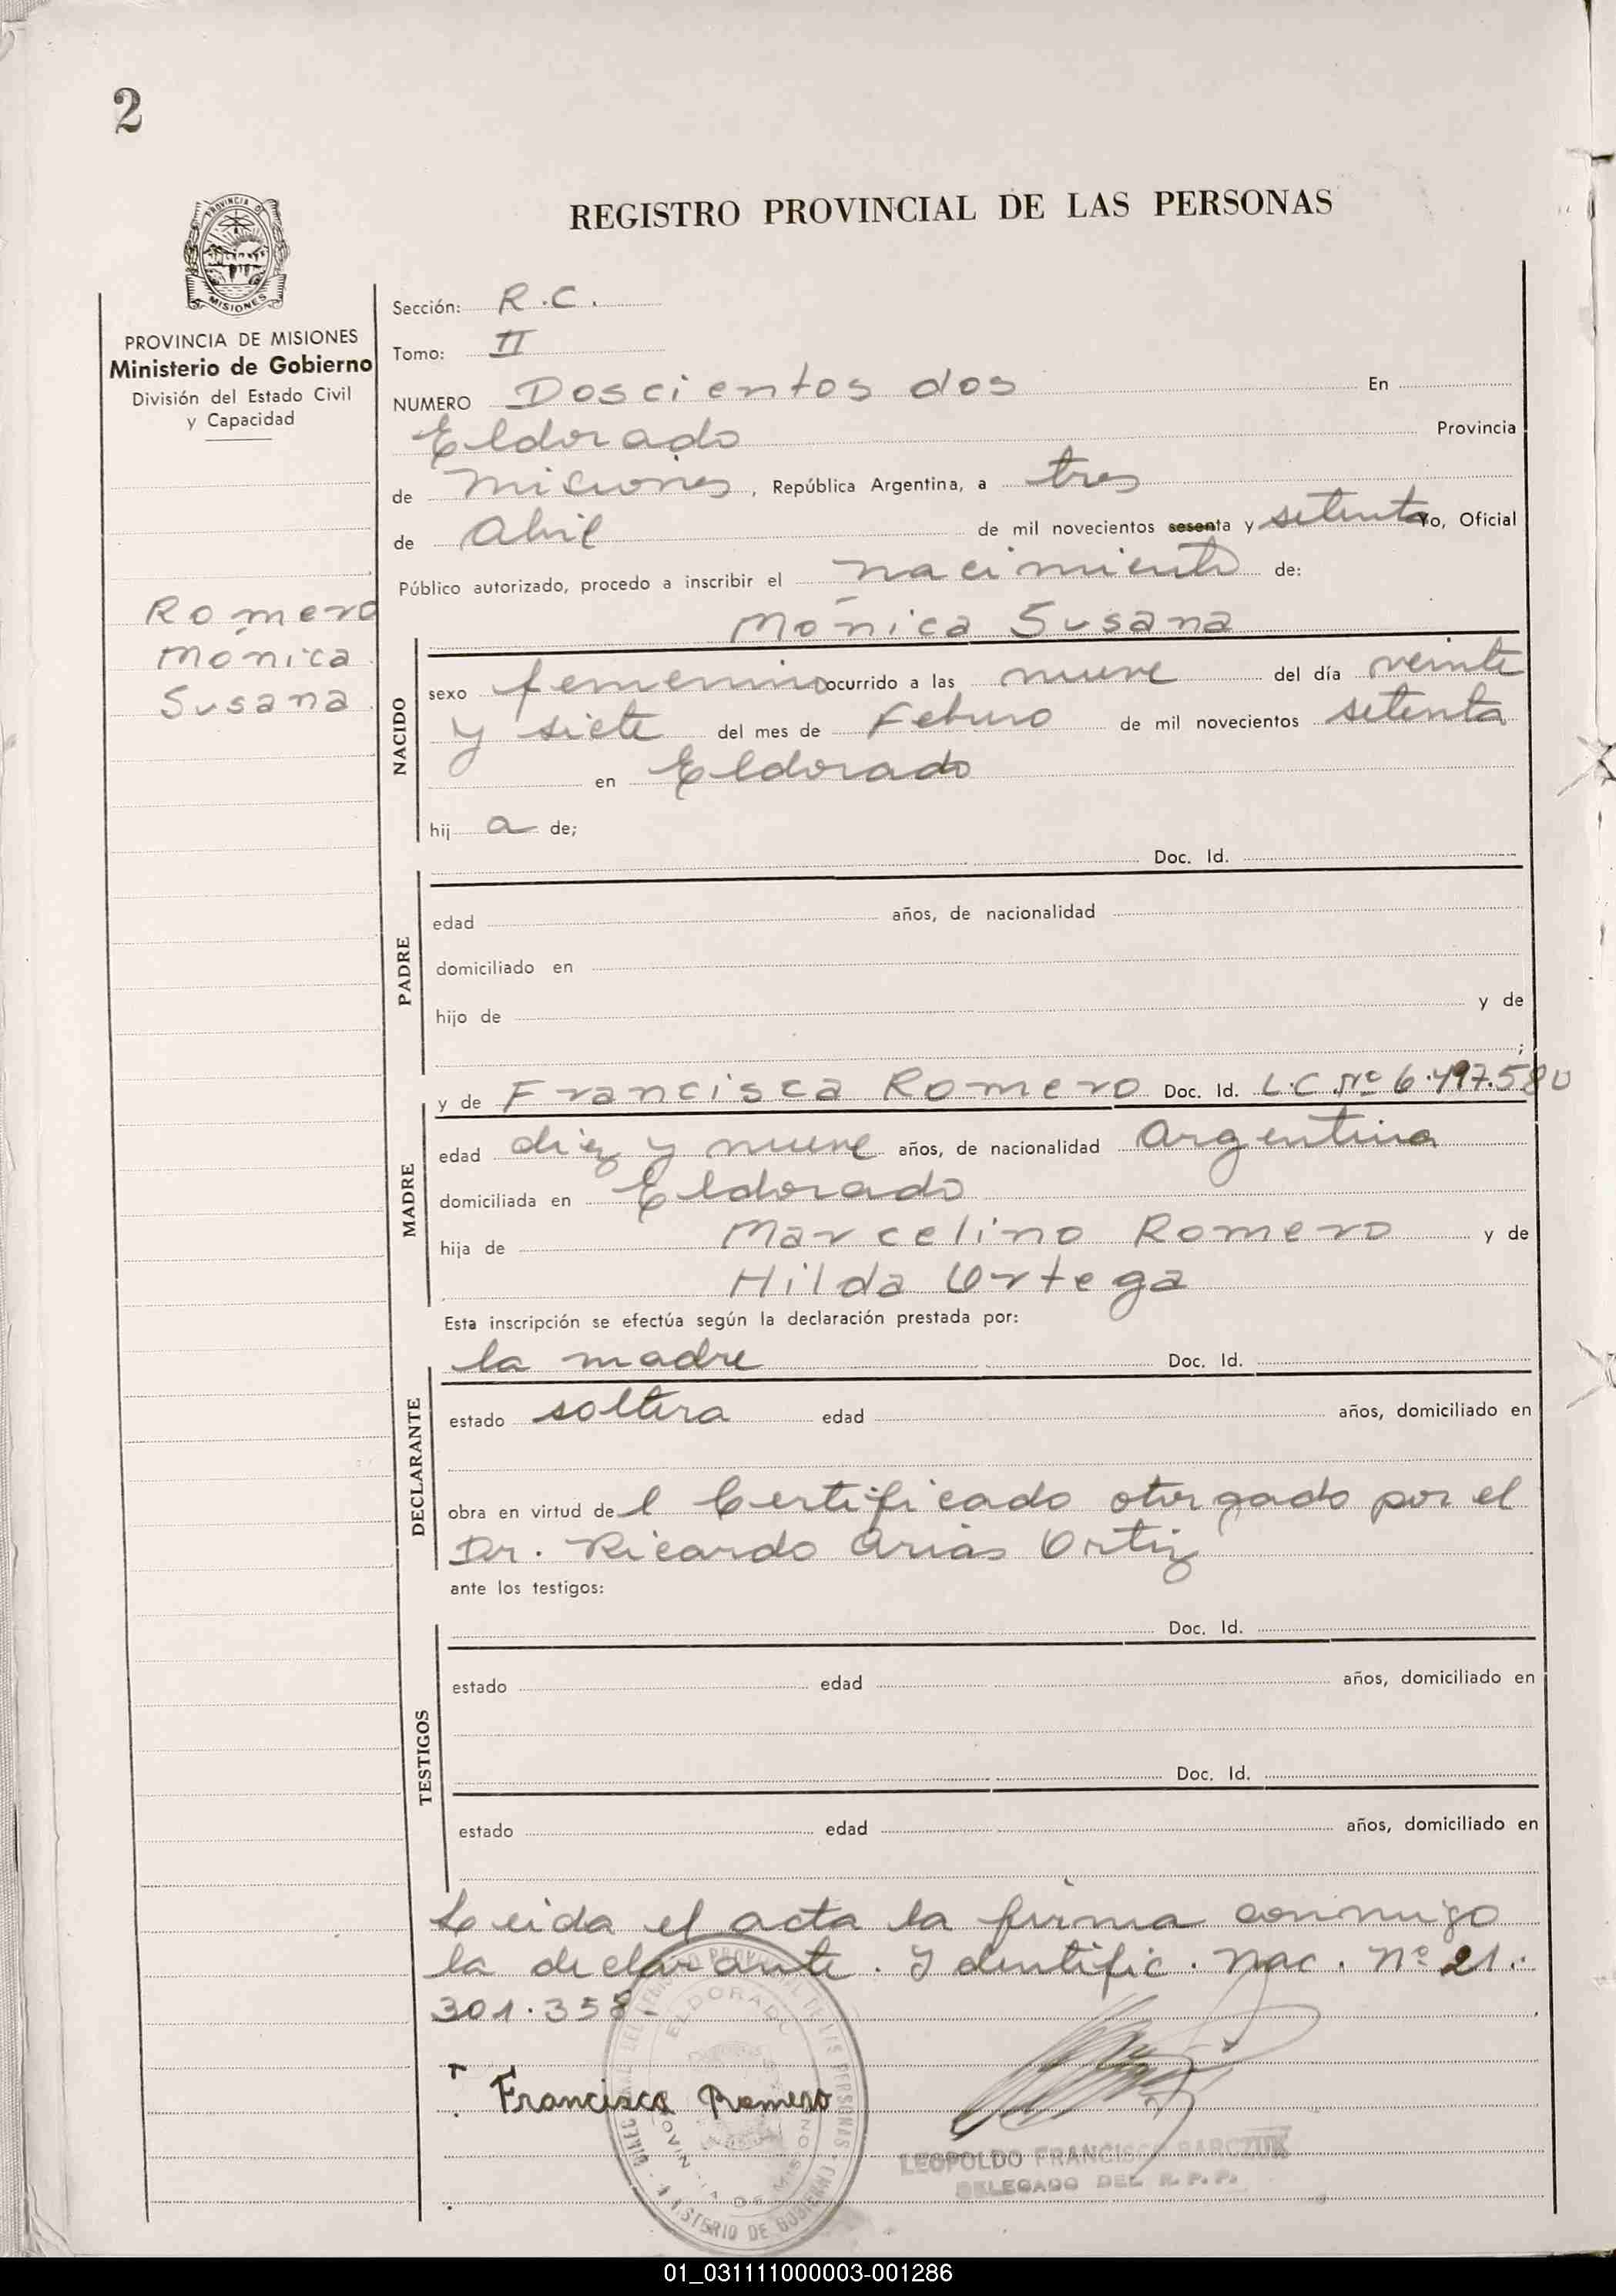 2
REGISTRO PROVINCIAL DE LAS PERSONAS
PROVINCIA DE MISIONES
MISIONES
PROVINCIA DE MISIONES
Ministerio de Gobierno
División del Estado Civil
y Capacidad
Romero
Mónica
Susana
Sección: R.C.
Tomo: II
NUMERO Doscientos dos En
Eldorado Provincia
de Misiones, República Argentina, a tres
de Abril de mil novecientos sesenta y setenta Yo, Oficial
Público autorizado, procedo a inscribir el nacimiento de:
Mónica Susana
NACIDO
sexo femenino ocurrido a las nueve del día veinte
y siete del mes de Febrero de mil novecientos setenta
en Eldorado
hij a de;
Doc. Id.
PADRE
edad años, de nacionalidad
domiciliado en
hijo de y de
;
MADRE
y de Francisca Romero Doc. Id. L.C. Nº 6.497.580
edad diez y nueve años, de nacionalidad Argentina
domiciliada en Eldorado
hija de Marcelino Romero y de
Hilda Ortega
Esta inscripción se efectúa según la declaración prestada por:
DECLARANTE
la madre Doc. Id.
estado soltera edad años, domiciliado en
obra en virtud del Certificado otorgado por el
Dr. Ricardo Arias Ortiz
ante los testigos:
TESTIGOS
Doc. Id.
estado edad años, domiciliado en
Doc. Id.
estado edad años, domiciliado en
Leida el acta la firma conmigo
la declarante. Identific. Nac. Nº 21.
301.358-
Francisca Romero
ELDORADO
MINISTERIO DE GOBIERNO
LEOPOLDO FRANCISCO BARCZUK
DELEGADO DEL R. P. P.
01_031111000003-001286